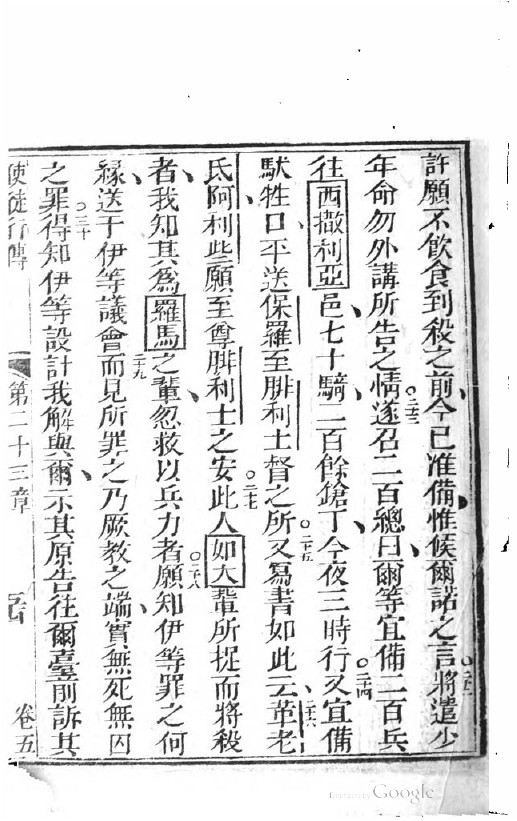 許願不飲食到殺之前今已准備惟候爾諾之言○二二將遣少
年命勿外講所告之情○二三遂召二百總曰爾等宜備二百兵
往西撒利亞邑七十騎二百餘鎗丁今夜三時行○二四又宜備
馱牲口平送保羅至腓利士督之所○二五又寫書如此云○二六革老
氐阿利些願至尊腓利士之安○二七此人如大輩所捉而將殺
者我知其為羅馬之輩忽救以兵力者○二八願知伊等罪之何
緣送于伊等議會○二九而見所罪之乃厥教之端實無死無囚
之罪○三十得知伊等設計我解與爾示其原告往爾臺前訴其
使徒行傳 第二十三章 卷五
Google